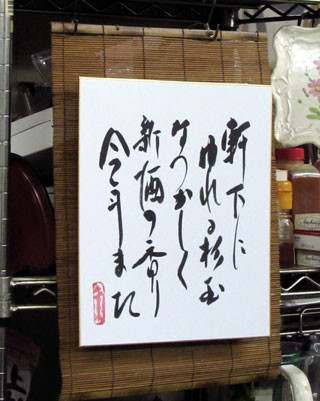 軒下に
ゆれる杉玉
なつかしく
新酒の香り
今年また